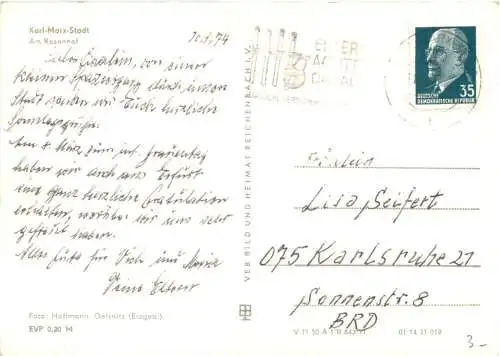 Karl-Marx-Stadt
Am Rosenhof
10.3.74
von einer
kleinen Spaziergang durch unsere
Stadt senden wir Euch herzliche
Sonntagsgrüße.
Am 8. März zum int. Frauentag
haben wir auch aus Erfurt
eine ganz herzliche Gratulation
erhalten, worüber wir uns sehr
gefreut haben.
Alles Gute für Dich und Maria
Deine Eltern
Foto: Hoffmann, Oelsnitz (Erzgeb.)
EVP 0,20 M
VEB BILD UND HEIMAT REICHENBACH I. V.
35
DEUTSCHE
DEMOKRATISCHE REPUBLIK
Fräulein
Lisa Seifert
075 Karlsruhe 21
Sonnenstr. 8
BRD
01 14 31 019
3-